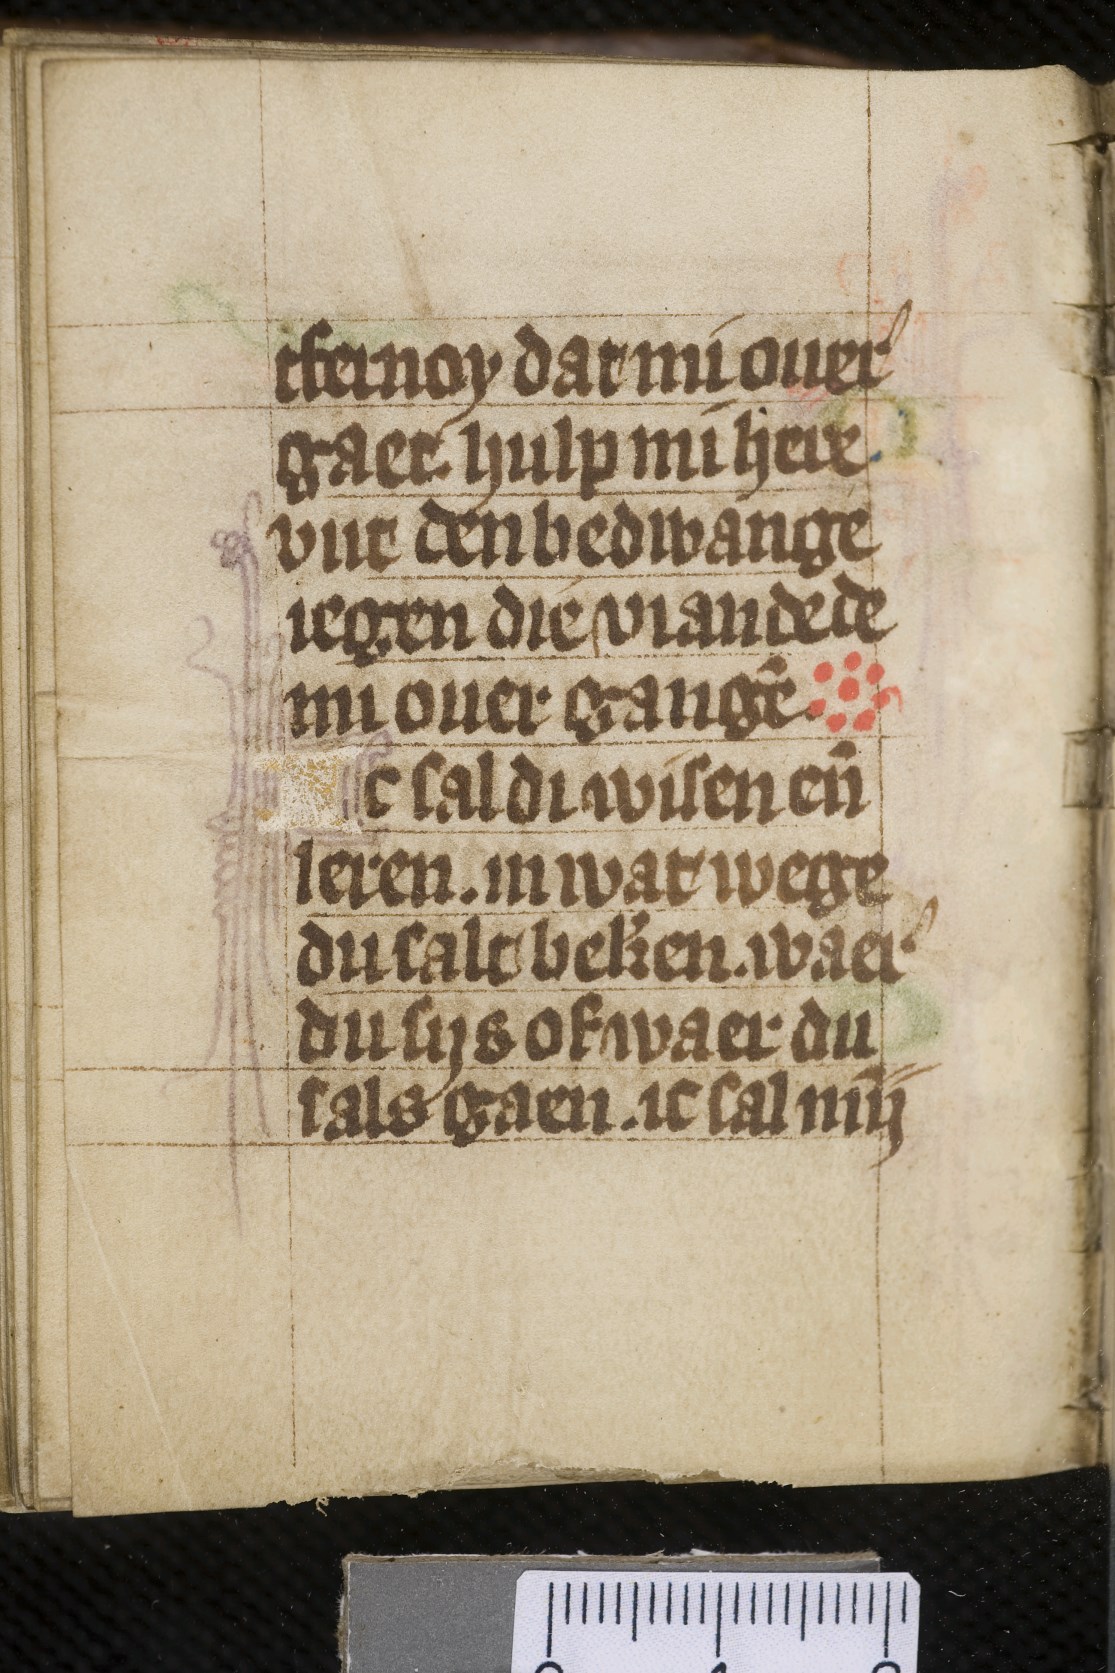 tfernoy dat mi ouer
gaet. hulp mi here
vut den bedwange
iegen die viande de
mi ouer gangē.
Ic sal di wisen en̄
leren. in wat wege
du salt bekēen. waer
du sijs of waer du
sals gaen. ic sal mijn
0 1 2